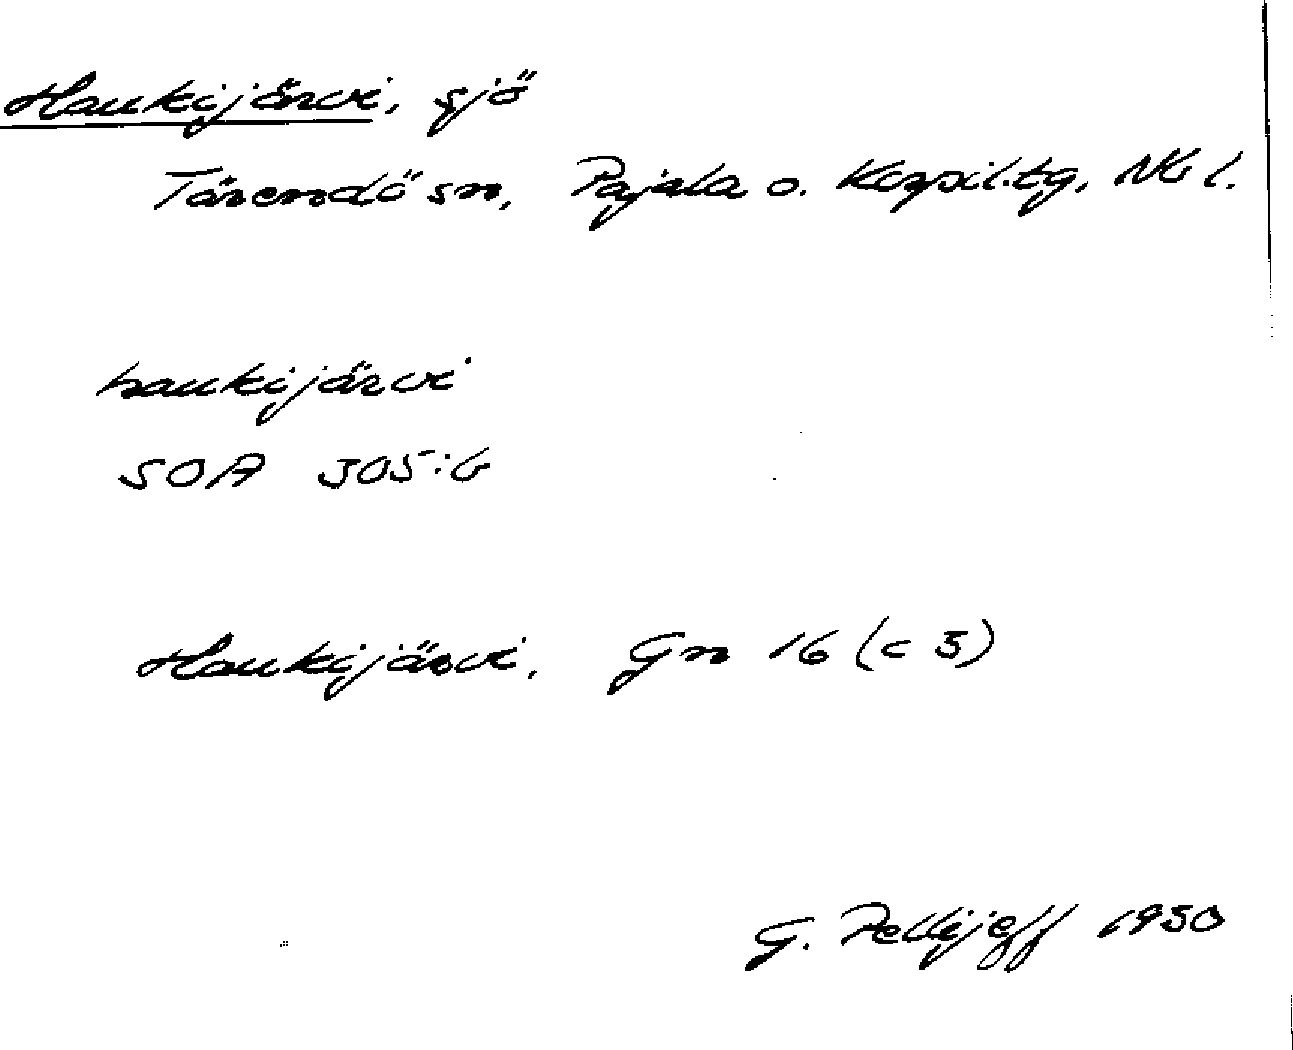 Haukijärvi, sjö
Tärendö sn, Pajala o. Korpil. tg, Nb l.
haukijärvi
SOA 305:6
Haukijärvi, Gn 16 (c 3)
G. Pellijeff 1950